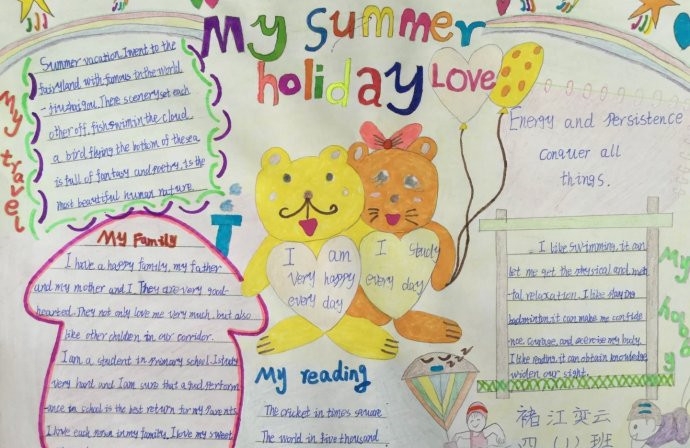 My Summer
holiday
LOVE
My travel
Summer vacation, I went to the
fairyland with famous in the world
-jiuzhaigou. There scenery set each
other off, fish swim in the cloud
a bird flying the bottom of the sea
is full of fantasy and poetry, is the
most beautiful human nature
Energy and Persistence
Conquer all
things.
I am
very happy
every day
I study
every day
My Family
I have a happy family, my father
and my mother and I. They are very good-
hearted. They not only love me very much, but also
like other children in our corridor.
I am a student in primary school. I study
very hard and I am sure that a good perform
-ance in school is the best return for my parents
I love each person in my family. I love my sweet
My reading
The cricket in times square
The world in five thousand
My hobby
I like swimming, it can
let me get the physical and men
tal relaxation. I like playing
badminton, it can make me confide
nce, courage, and exercise my body.
I like reading, it can obtain knowledge,
widen our sight.
zzz
褚江奕云
四(1)班